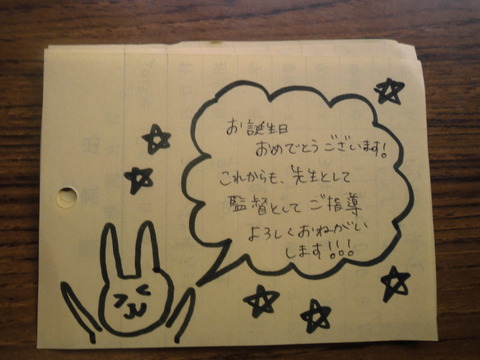 お誕生日
おめでとうございます!
これからも、先生として
監督としてご指導
よろしくおねがい
します!!!